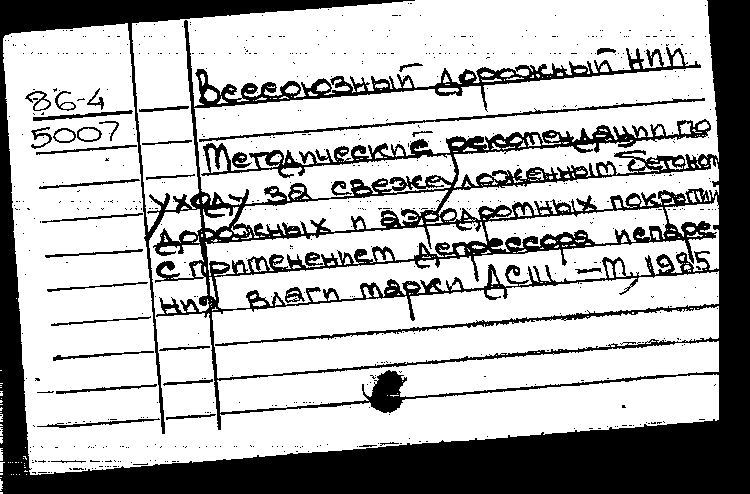 86-4
5007
Всесоюзный дорожный НИИ.
Методические рекомендации по
уходу за свежеуложенным бетоном
дорожных и аэродромных покрытий
с применением депрессора испаре-
ния влаги марки ДСШ. - М., 1985